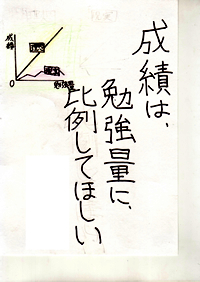 成績は、
勉強量に、
比例してほしい
成績
理想
現実
0
勉強量